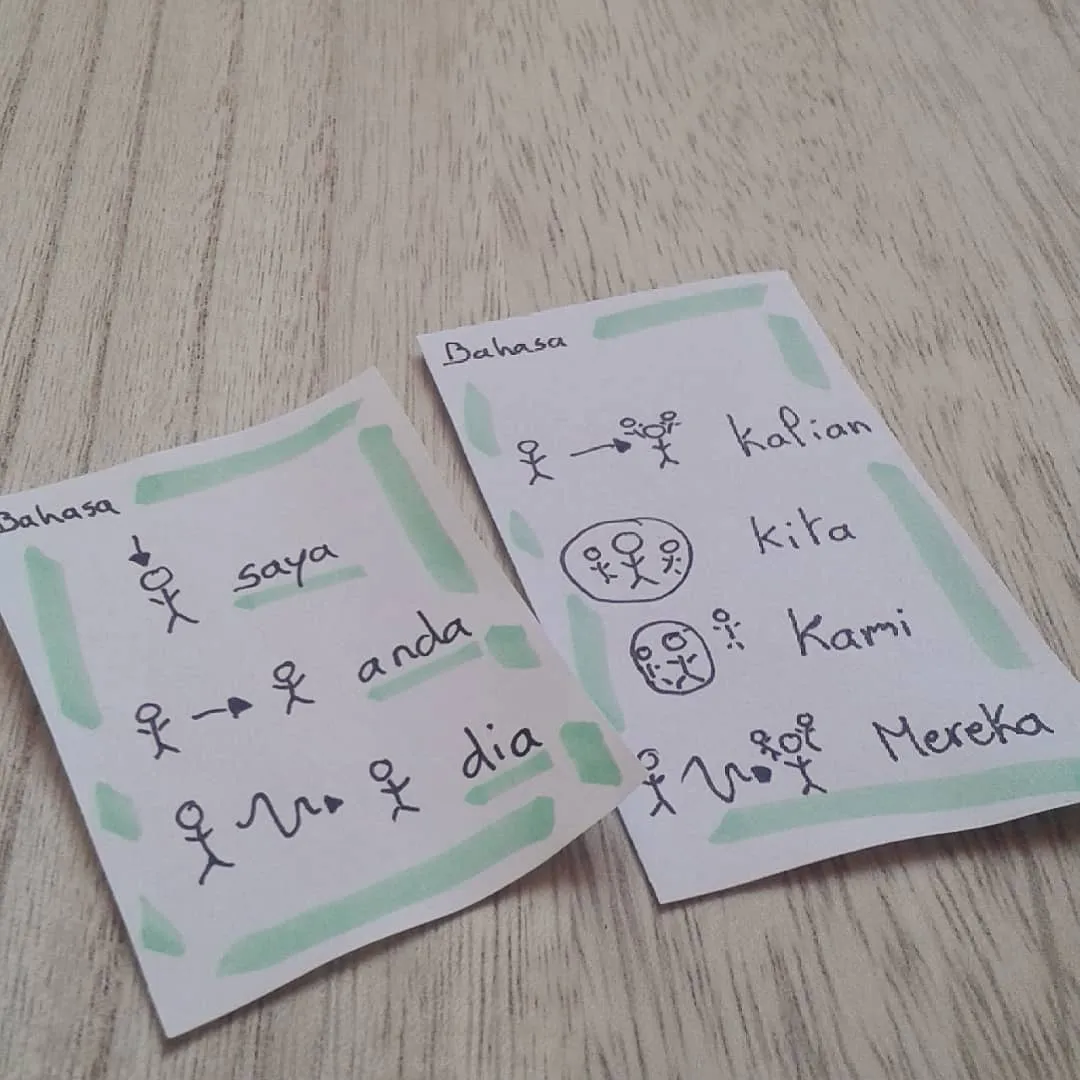 Bahasa
saya
anda
dia
Bahasa
Kalian
kita
Kami
Mereka